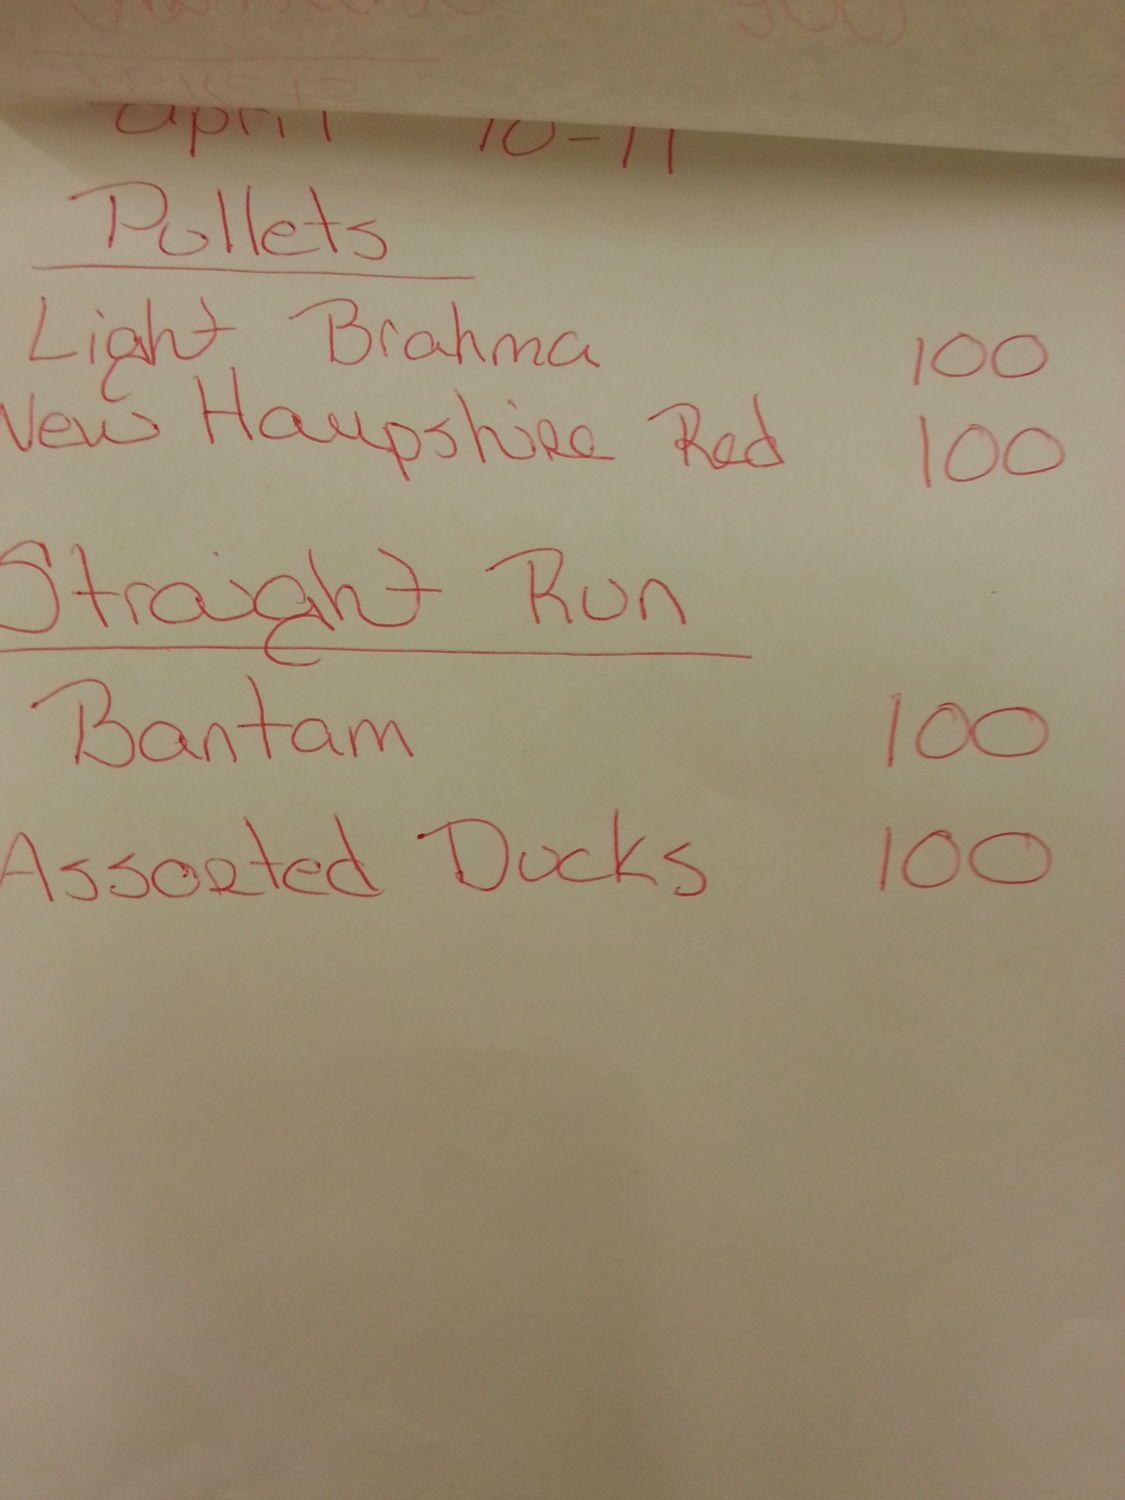 April 10-11
Pullets
Light Brahma 100
New Hampshire Red 100
Straight Run
Bantam 100
Assorted Ducks 100